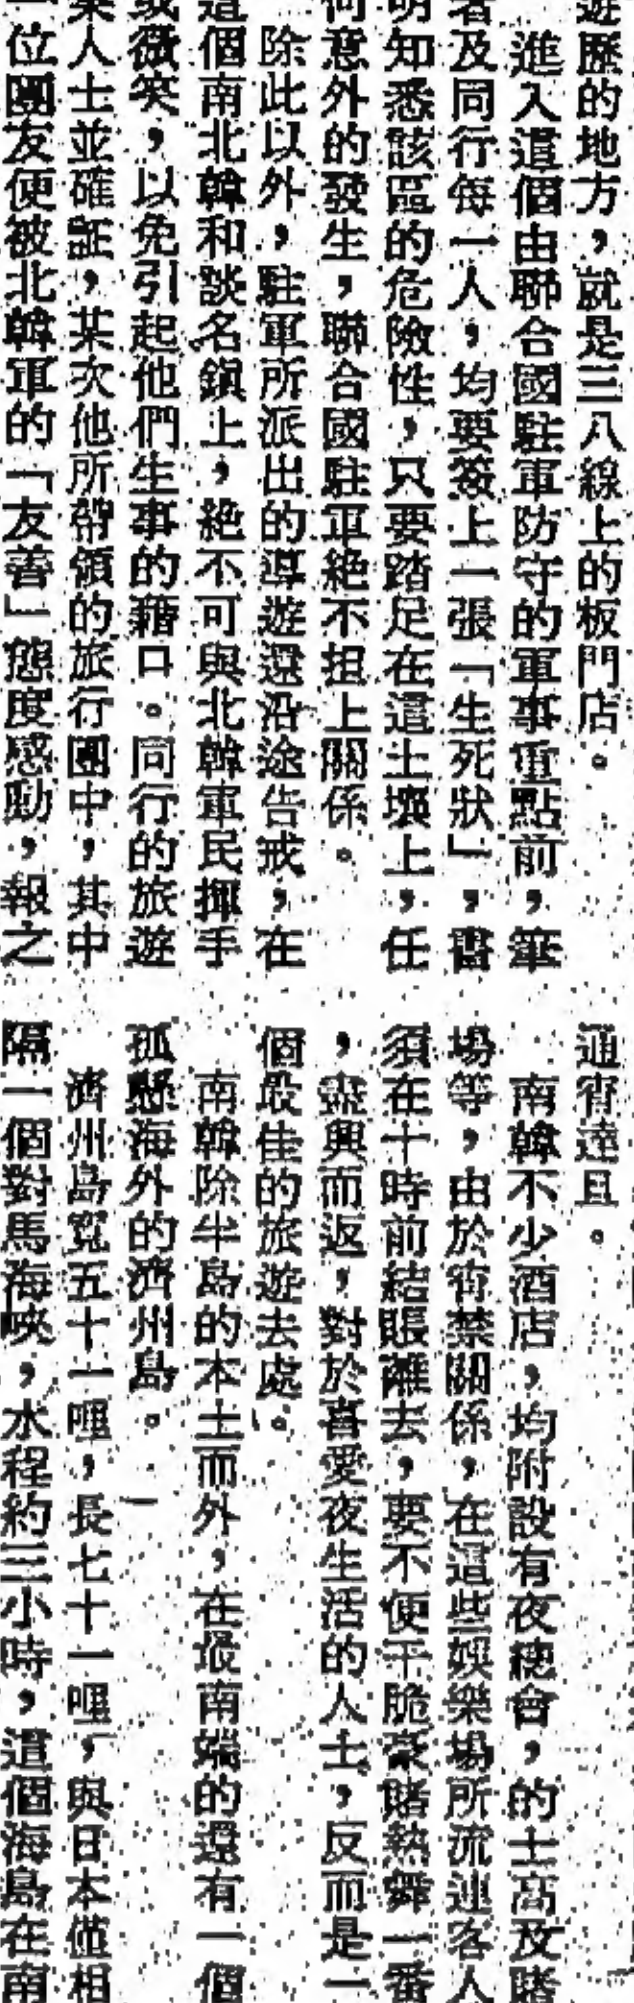 遊歷的地方，就是三八線上的板門店。
進入這個由聯合國駐軍防守的軍事重點前，筆
者及同行每一人，均要簽上一張「生死狀」，書
明知悉該區的危險性，只要踏足在這土壤上，任
何意外的發生，聯合國駐軍絕不担上關係。
除此以外，駐軍所派出的導遊還沿途告戒，在
這個南北韓和談名鎮上，絕不可與北韓軍民揮手
或微笑，以免引起他們生事的藉口。同行的旅遊
業人士並確証，某次他所帶領的旅行團中，其中
一位團友便被北韓軍的「友善」態度感動，報之
通宵達旦。
南韓不少酒店，均附設有夜總會，的士高及賭
場等，由於宵禁關係，在這些娛樂場所流連客人
須在十時前結賬離去，要不便干脆豪賭熱舞一番
，盡興而返，對於喜愛夜生活的人士，反而是一
個最佳的旅遊去處。
南韓除半島的本土而外，在最南端的還有一個
孤懸海外的濟州島。
濟州島寬五十一哩，長七十一哩，與日本僅相
隔一個對馬海峽，水程約三小時，這個海島在南